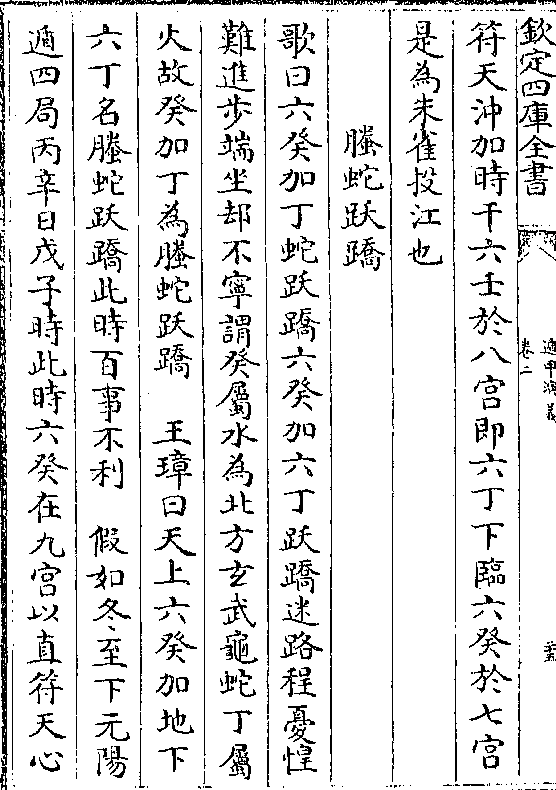 欽定四庫全書
遁甲演義
卷二
符天沖加時干六壬於八宮即六丁下臨六癸於七宮
是為朱雀投江也
螣蛇跃蹻
歌曰六癸加丁蛇跃蹻六癸加六丁跃蹻迷路程憂惶
難進步端坐却不寧謂癸屬水為北方玄武龜蛇丁屬
火故癸加丁為螣蛇跃蹻　王璋曰天上六癸加地下
六丁名螣蛇跃蹻此時百事不利　假如冬至下元陽
遁四局丙辛日戊子時此時六癸在九宮以直符天心